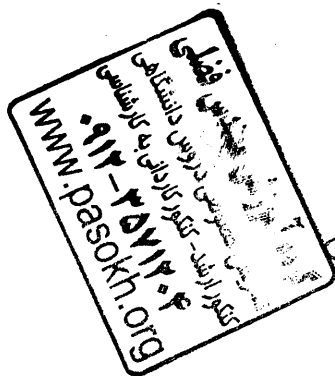 مهندس فضلی
تدریس خصوصی دروس دانشگاهی
کنکور ارشد - کنکور کاردانی به کارشناسی
۰۹۱۲-۳۵۷۱۲۰۴
www.pasokh.org